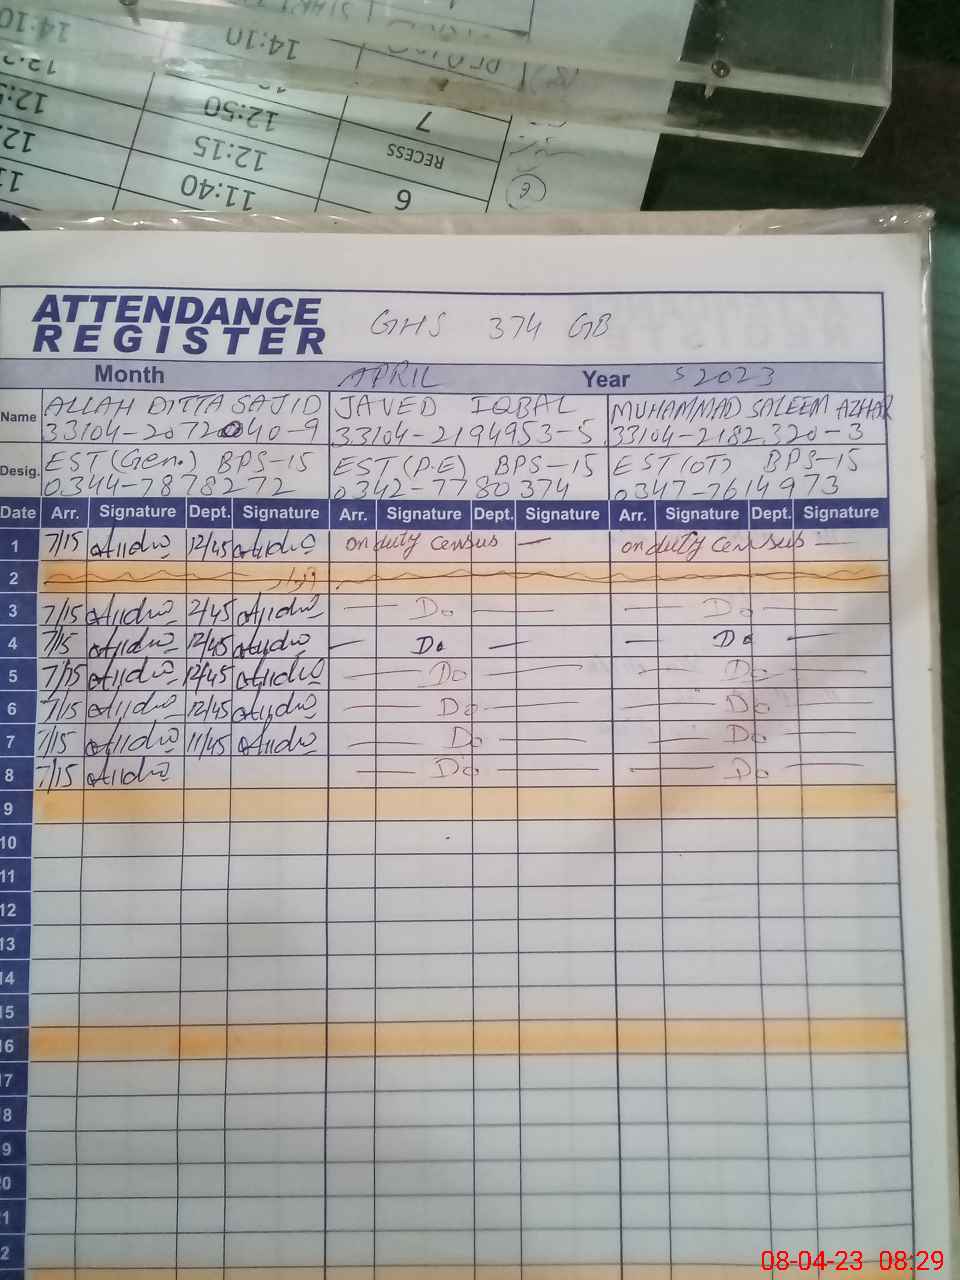 14:10
14:10
12:50
7
12:15
RECESS
11:40
6
ATTENDANCE
REGISTER
GHS 374 GB
Month APRIL Year 2023
Name ALLAH DITTA SAJID JAVED IQBAL MUHAMMAD SALEEM AZHAR
33104-2072040-9 33104-2194953-5 33104-2182320-3
Desig. EST(Gen.) BPS-15 EST(P.E) BPS-15 EST(OT) BPS-15
0344-7878272 0342-7780374 0347-7614973
Date Arr. Signature Dept. Signature Arr. Signature Dept. Signature Arr. Signature Dept. Signature
1 7/15 12/45 on duty census — on duty census —
2 اتوار
3 7/15 2/45 — Do — — Do —
4 7/15 12/45 — Do — — Do —
5 7/15 12/45 — Do — — Do —
6 7/15 12/45 — Do — — Do —
7 7/15 11/45 — Do — — Do —
8 7/15 — Do — — Do —
9
10
11
12
13
14
15
16
17
8
9
20
21
2
08-04-23 08:29